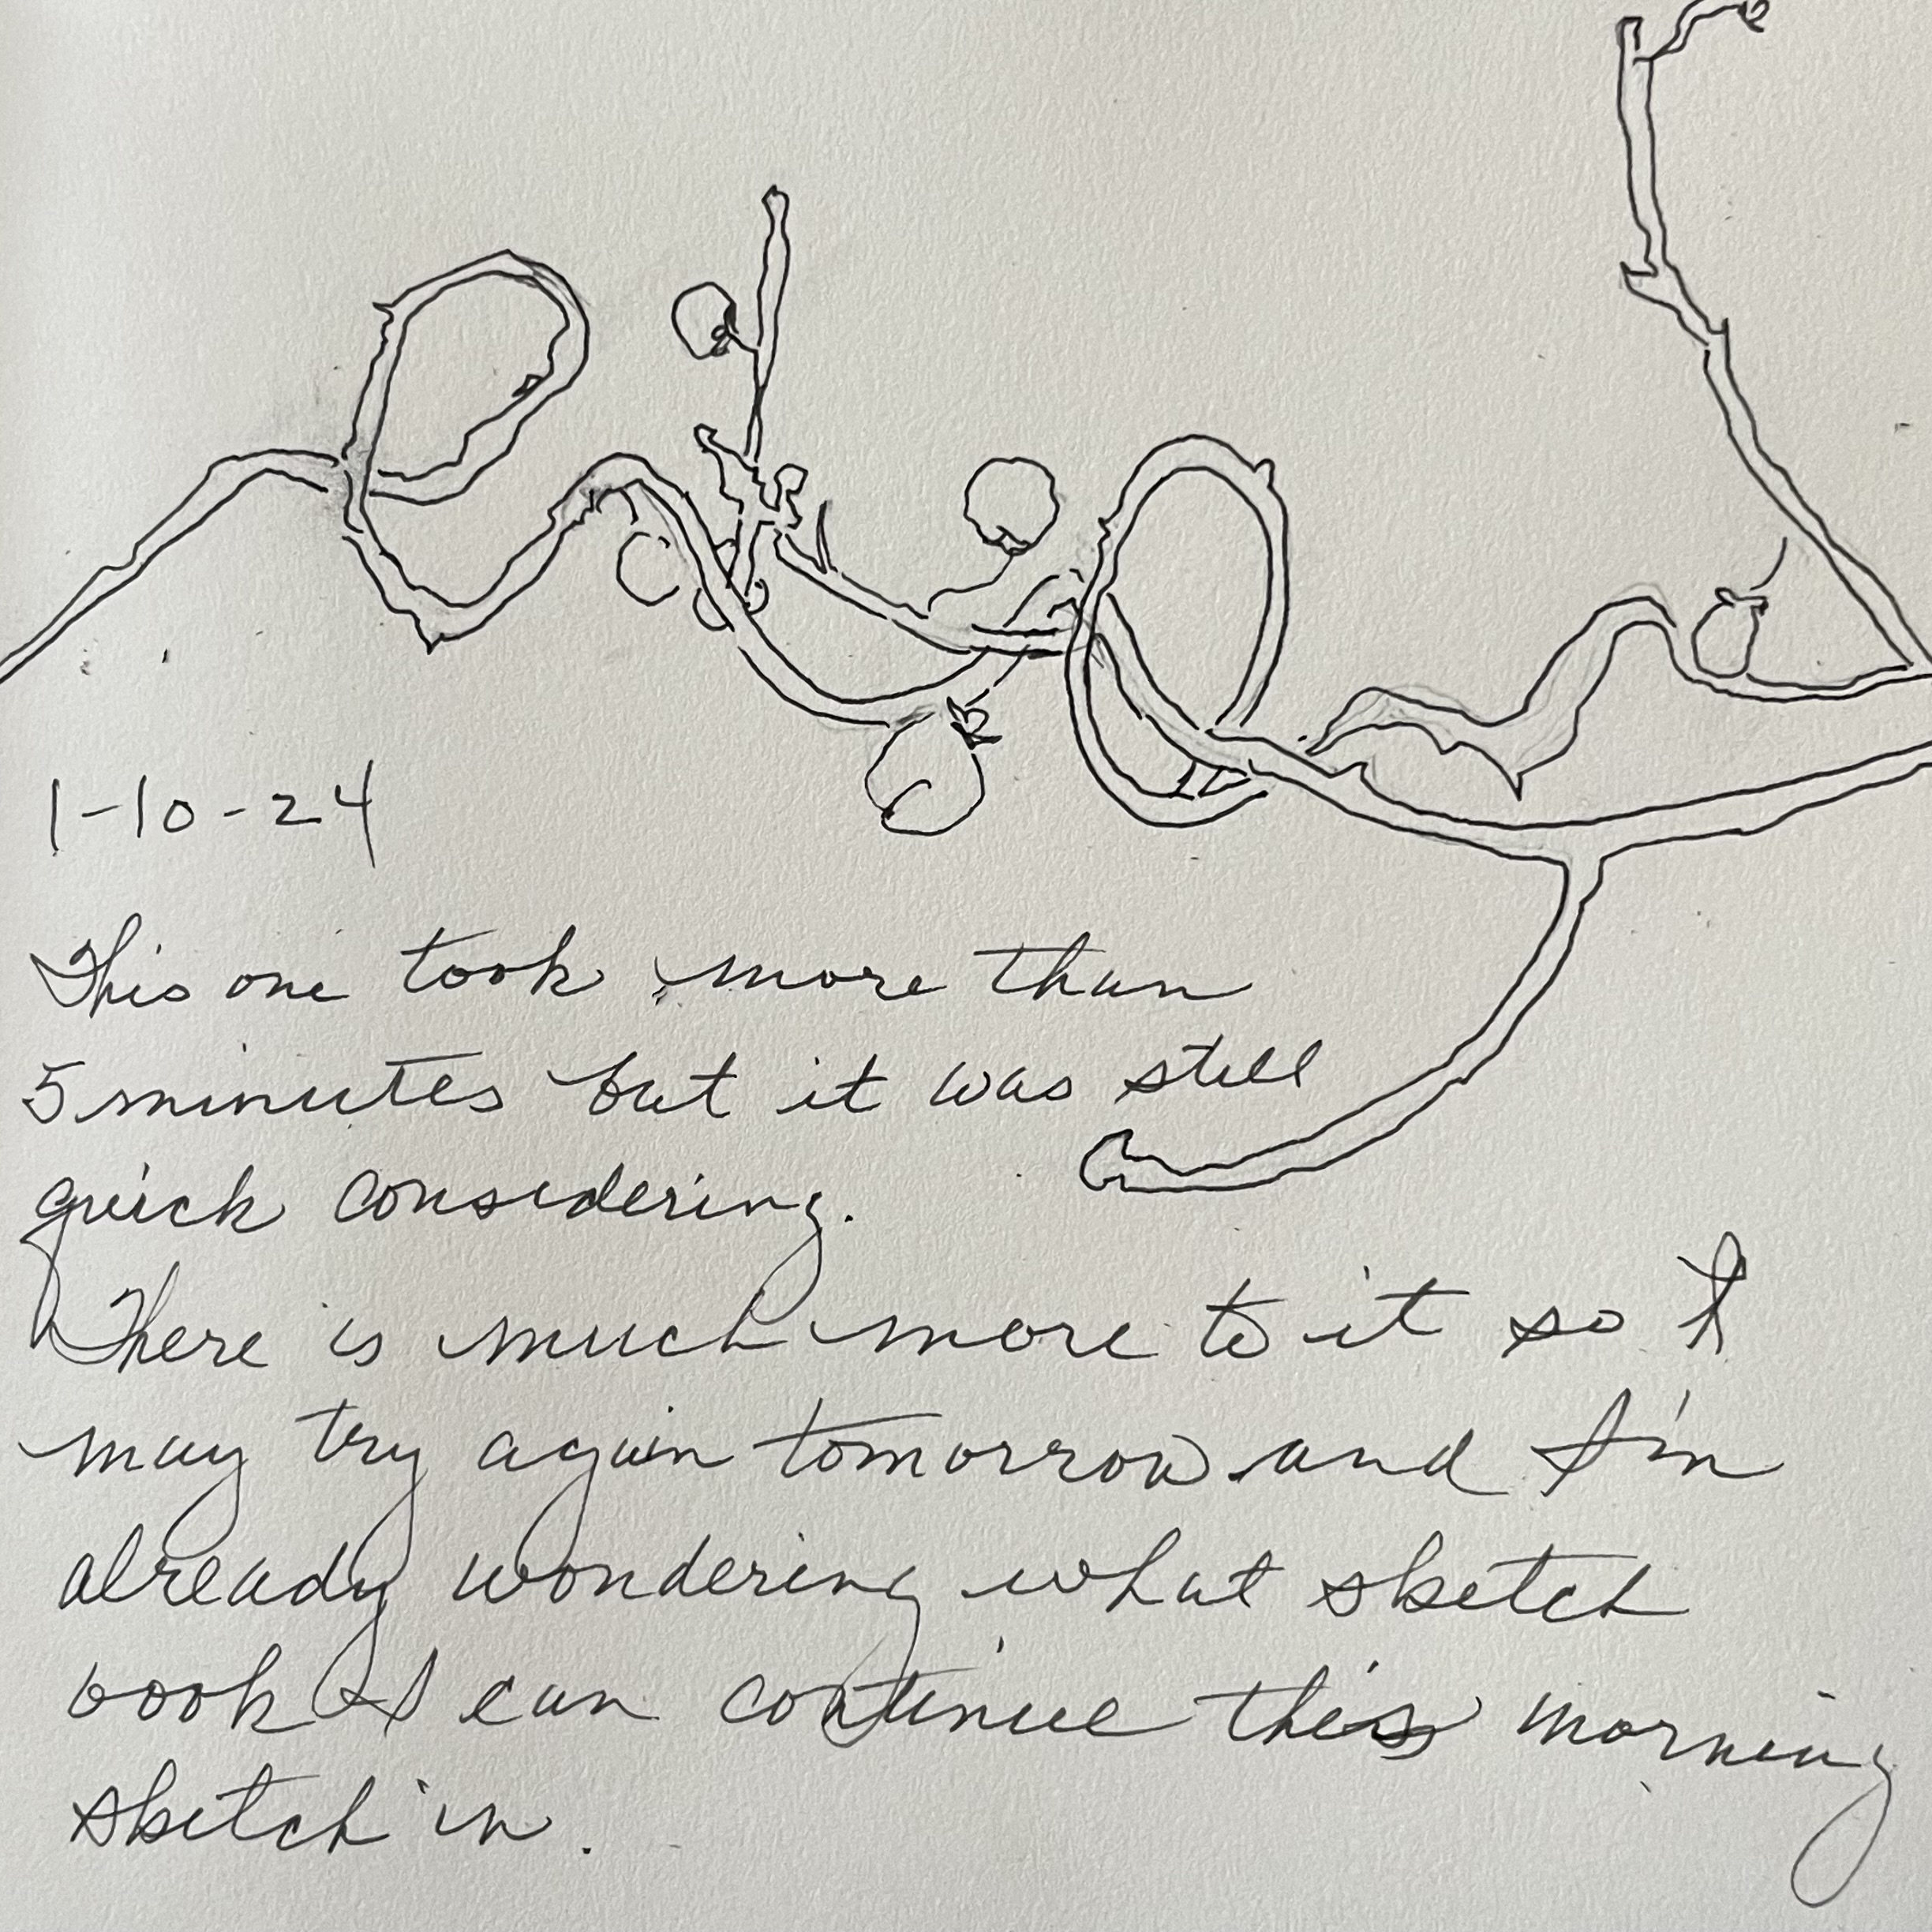 1-10-24
This one took more than
5 minutes but it was still
quick considering.
There is much more to it so I
may try again tomorrow and I'm
already wondering what sketch
book I can continue this morning
sketch in.